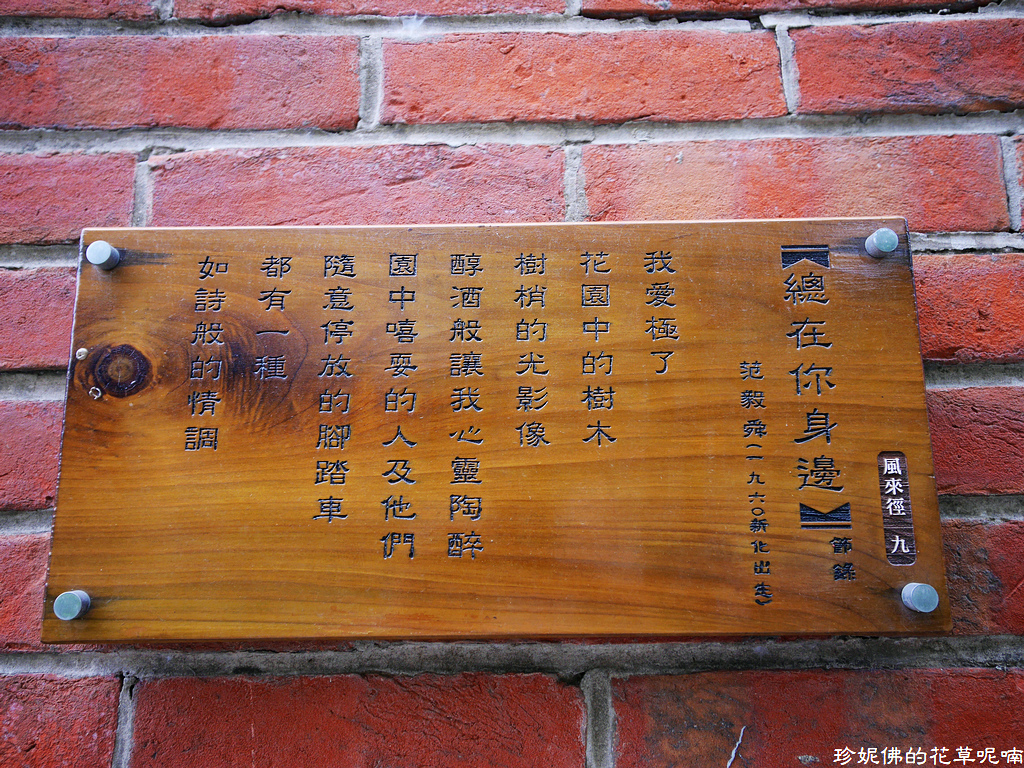 風來徑 九
總在你身邊 節錄
范毅舜(一九六〇新化出生)
我愛極了
花園中的樹木
樹梢的光影像
醇酒般讓我心靈陶醉
園中嘻耍的人及他們
隨意停放的腳踏車
都有一種
如詩般的情調
珍妮佛的花草呢喃